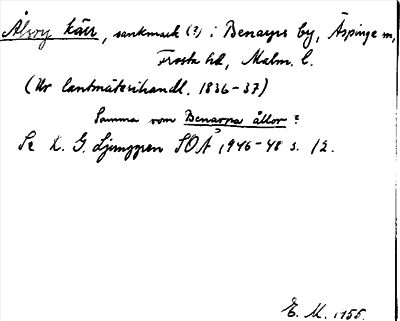 Ålsoy kärr, sankmark (?) i Benarps by, Äspinge sn,
Frosta hd, Malm. l.
(Ur lantmäterihandl. 1836-37)
Samma som Benarpa ållor?
Se K. G. Ljunggren SOÅ 1946-48 s. 12.
E. M. 1955.